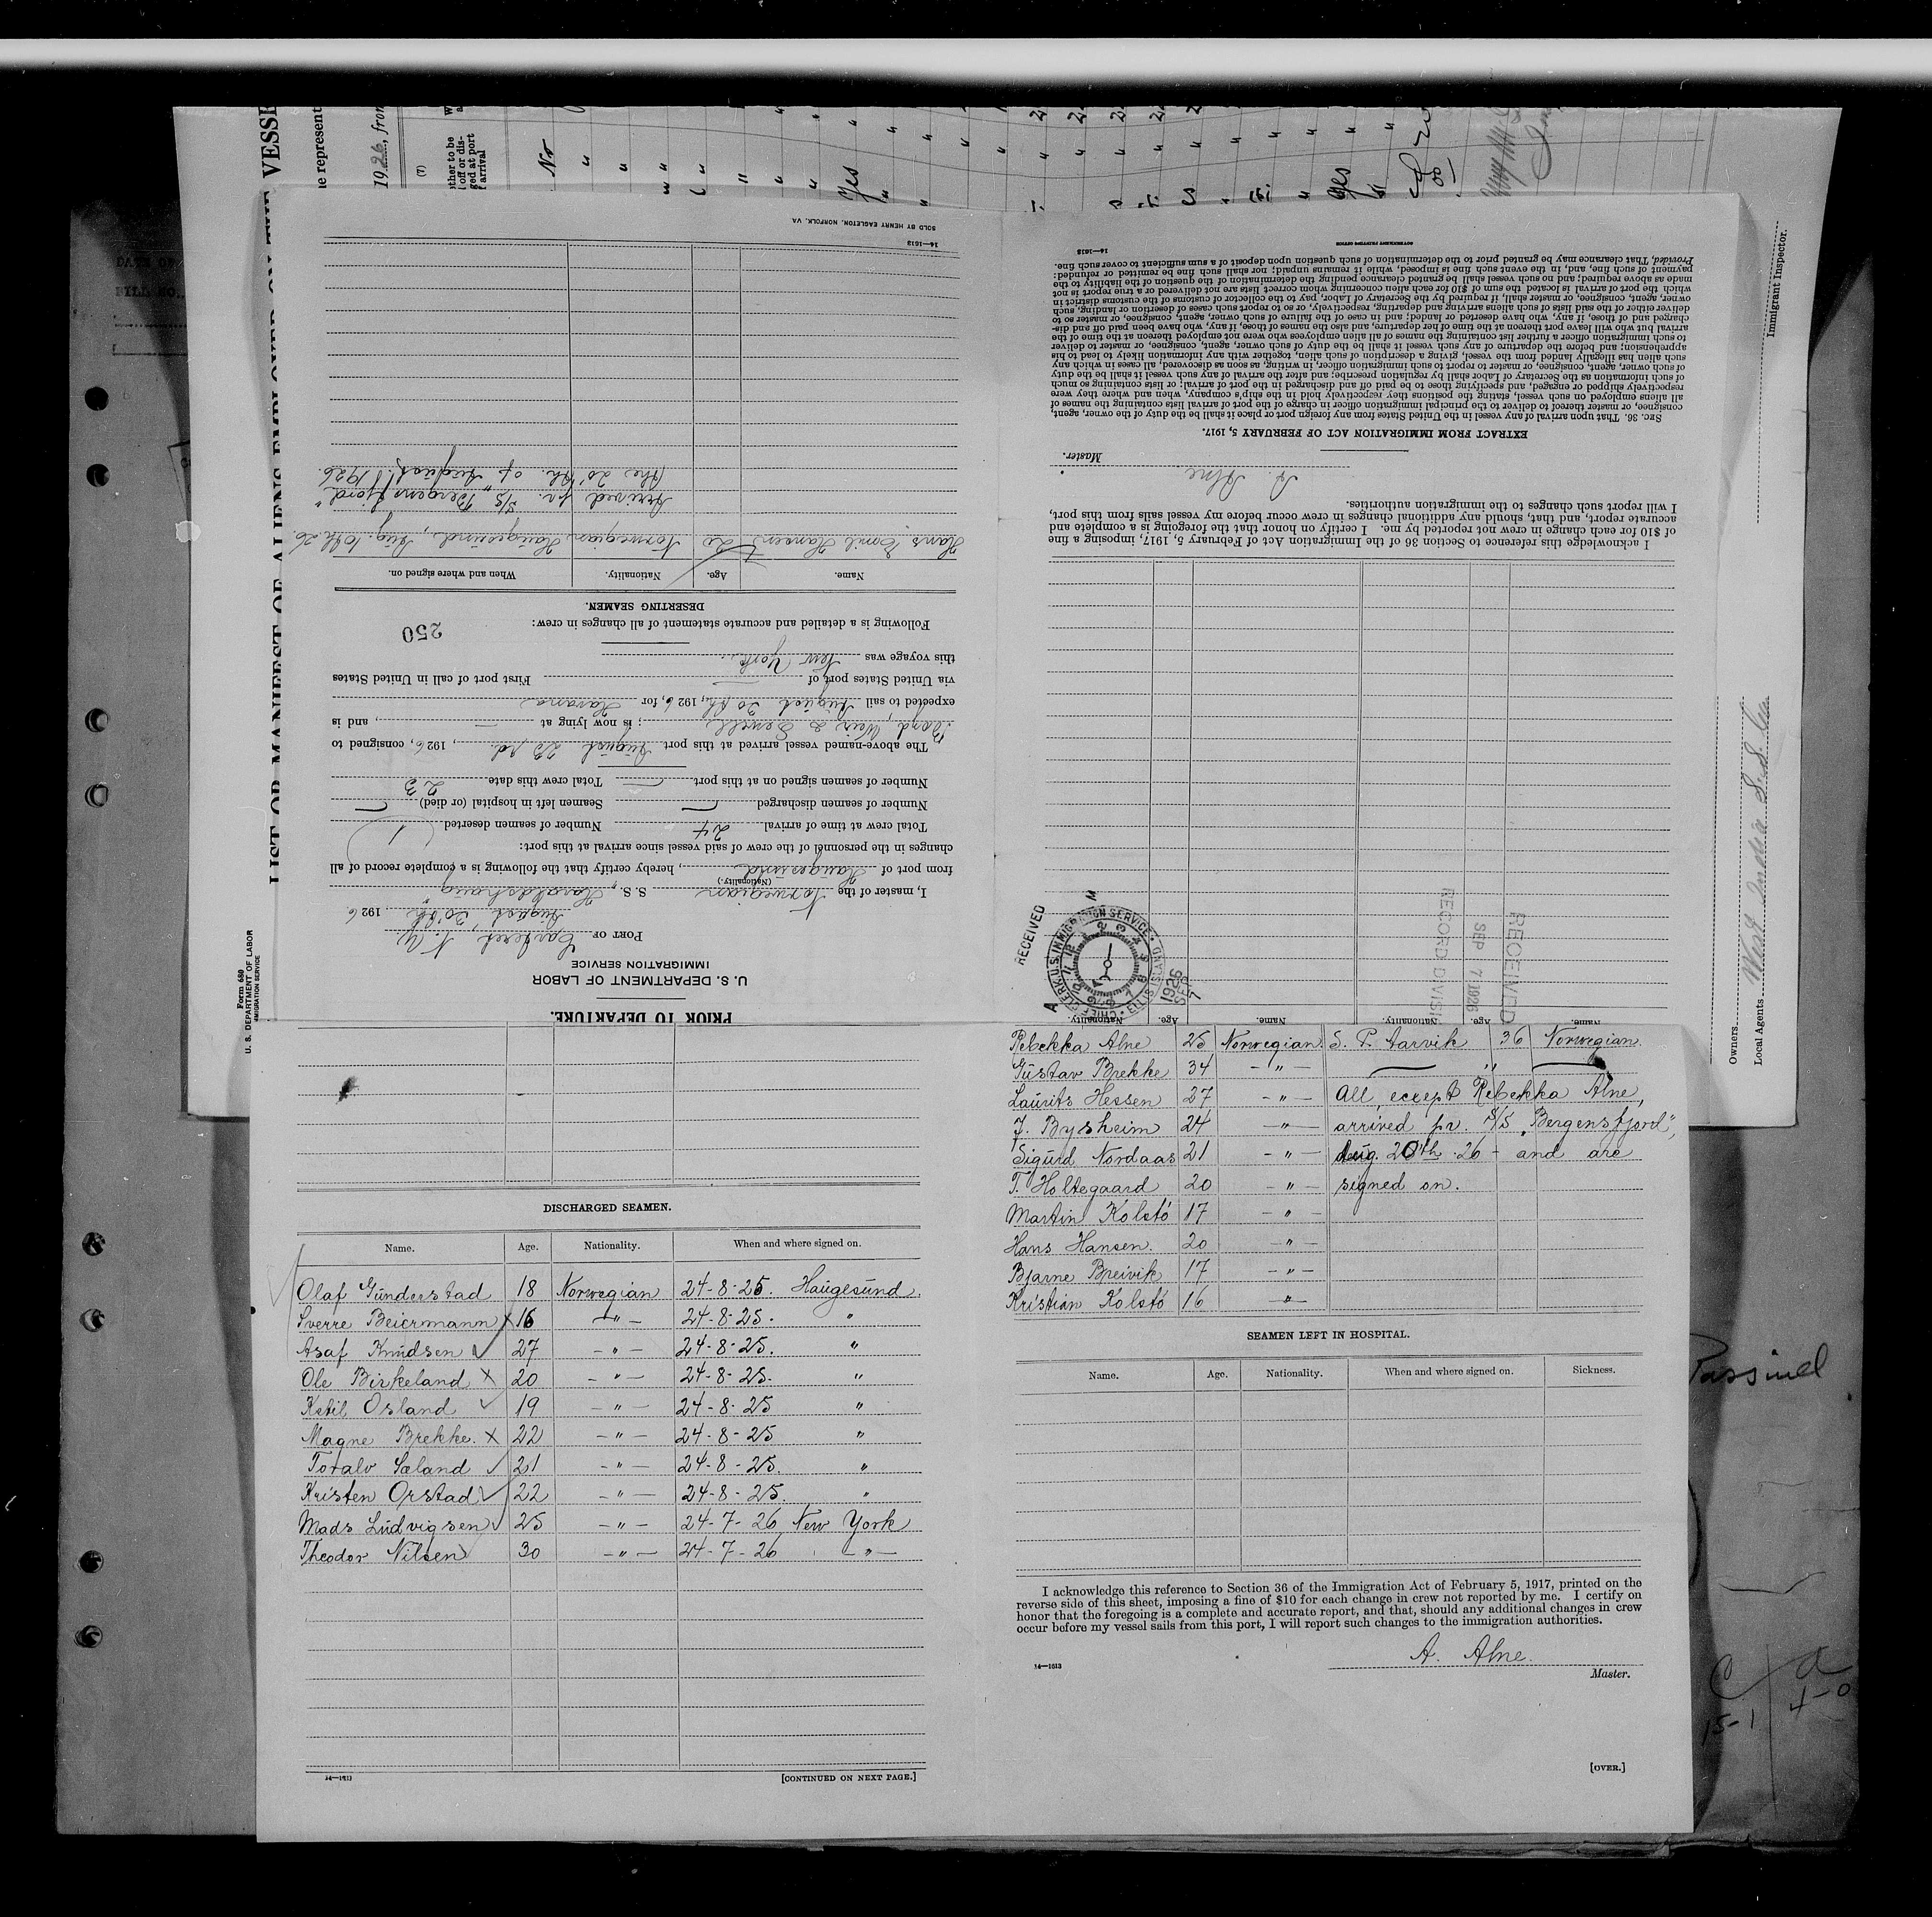 LIST OR MANIFEST OF ALIENS EMPLOYED ON THE VESSE
Form 680
U. S. DEPARTMENT OF LABOR
IMMIGRATION SERVICE
e represent
19 26, from
(7)
No
Yes
yes
Immigrant Inspector.
Owners
Local Agents West India S.S. Co
PRIOR TO DEPARTURE.
U. S. DEPARTMENT OF LABOR
IMMIGRATION SERVICE
PORT OF Carteret N. Y.
August 30'th, 1926
I, master of the Norwegian S. S. "Haraldshaug"
(Nationality.)
from port of Haugesund, hereby certify that the following is a complete record of all
changes in the personnel of the crew of said vessel since arrival at this port:
Total crew at time of arrival 24 Number of seamen deserted 1
Number of seamen discharged — Seamen left in hospital (or died) —
Number of seamen signed on at this port — Total crew this date 23
The above-named vessel arrived at this port August 23 rd., 1926, consigned to
Boyd, Weir & Sewell; is now lying at —, and is
expected to sail August 30th, 1926, for Havana
via United States port of — First port of call in United States
this voyage was New York.
Following is a detailed and accurate statement of all changes in crew:
250
DESERTING SEAMEN.
Name. Age. Nationality. When and where signed on.
Hans Emil Hansen 20 Norwegian Haugesund, Aug. 10th 26
Arrived pr. S/S "Bergensfjord"
(the 20'th. of August 1926.
14—1613
SOLD BY HENRY EAGLETON, NORFOLK, VA
Name. Age. Nationality. Name. Age. Nationality.
RECEIVED
SEP 7 1926
RECORD DIVISIO
RECEIVED
CHIEF CLERK U.S. IMMIGRATION SERVICE
ELLIS ISLAND
1926 SEP 7
A M
I acknowledge this reference to Section 36 of the Immigration Act of February 5, 1917, imposing a fine
of $10 for each change in crew not reported by me. I certify on honor that the foregoing is a complete and
accurate report, and that, should any additional changes in crew occur before my vessel sails from this port,
I will report such changes to the immigration authorities.
A. Alne
Master.
EXTRACT FROM IMMIGRATION ACT OF FEBRUARY 5, 1917.
Sec. 36. That upon arrival of any vessel in the United States from any foreign port or place it shall be the duty of the owner, agent,
consignee, or master thereof to deliver to the principal immigration officer in charge of the port of arrival lists containing the names of
all aliens employed on such vessel, stating the positions they respectively hold in the ship's company, when and where they were
respectively shipped or engaged, and specifying those to be paid off and discharged in the port of arrival; or lists containing so much
of such information as the Secretary of Labor shall by regulation prescribe; and after the arrival of any such vessel it shall be the duty
of such owner, agent, consignee, or master to report to such immigration officer, in writing, as soon as discovered, all cases in which any
such alien has illegally landed from the vessel, giving a description of such alien, together with any information likely to lead to his
apprehension; and before the departure of any such vessel it shall be the duty of such owner, agent, consignee, or master to deliver
to such immigration officer a further list containing the names of all alien employees who were not employed thereon at the time of the
arrival but who will leave port thereon at the time of her departure, and also the names of those, if any, who have been paid off and dis-
charged and of those, if any, who have deserted or landed; and in case of the failure of such owner, agent, consignee, or master so to
deliver either of the said lists of such aliens arriving and departing, respectively, or so to report such cases of desertion or landing, such
owner, agent, consignee, or master shall, if required by the Secretary of Labor, pay to the collector of customs of the customs district in
which the port of arrival is located the sum of $10 for each alien concerning whom correct lists are not delivered or a true report is not
made as above required; and no such vessel shall be granted clearance pending the determination of the question of the liability to the
payment of such fine, and, in the event such fine is imposed, while it remains unpaid; nor shall such fine be remitted or refunded:
Provided, That clearance may be granted prior to the determination of such question upon deposit of a sum sufficient to cover such fine.
14—1613
GOVERNMENT PRINTING OFFICE
DISCHARGED SEAMEN.
Name. Age. Nationality. When and where signed on.
Olaf Gunderstad 18 Norwegian 24-8-25. Haugesund.
Sverre Beiermann x 16 — " — 24-8-25. "
Asaf Knudsen 27 - " — 24-8-25. "
Ole Birkeland x 20 - " — 24-8-25. "
Ketil Osland 19 — " — 24-8-25 "
Magne Brekke. x 22 - " — 24-8-25 "
Toralv Sæland 21 - " — 24-8-25. "
Kristen Orstad 22 - " — 24-8-25. "
Mads Ludvigsen 25 — " — 24-7-26 New York
Theodor Nilsen 30 — " — 24-7-26 — " —
14—1613
[CONTINUED ON NEXT PAGE.]
Rebekka Alne 25 Norwegian. S. P. Aarvik 36 Norwegian.
Gustav Brekke 34 - " —
Laurits Hessen 27 - " — All except Rebekka Alne,
J. Bysheim 24 - " — arrived pr. S/S "Bergensfjord",
Sigurd Nordaas 21 - " — Aug. 20th. 26 - and are
T. Holtegaard 20 - " — signed on.
Martin Kolstó 17 - " —
Hans Hansen. 20 — " —
Bjarne Breivik 17 - " —
Kristian Kolstó 16 — " —
SEAMEN LEFT IN HOSPITAL.
Name. Age. Nationality. When and where signed on. Sickness.
I acknowledge this reference to Section 36 of the Immigration Act of February 5, 1917, printed on the
reverse side of this sheet, imposing a fine of $10 for each change in crew not reported by me. I certify on
honor that the foregoing is a complete and accurate report, and that, should any additional changes in crew
occur before my vessel sails from this port, I will report such changes to the immigration authorities.
A. Alne.
14—1613
Master.
[OVER.]
15-1
4-0